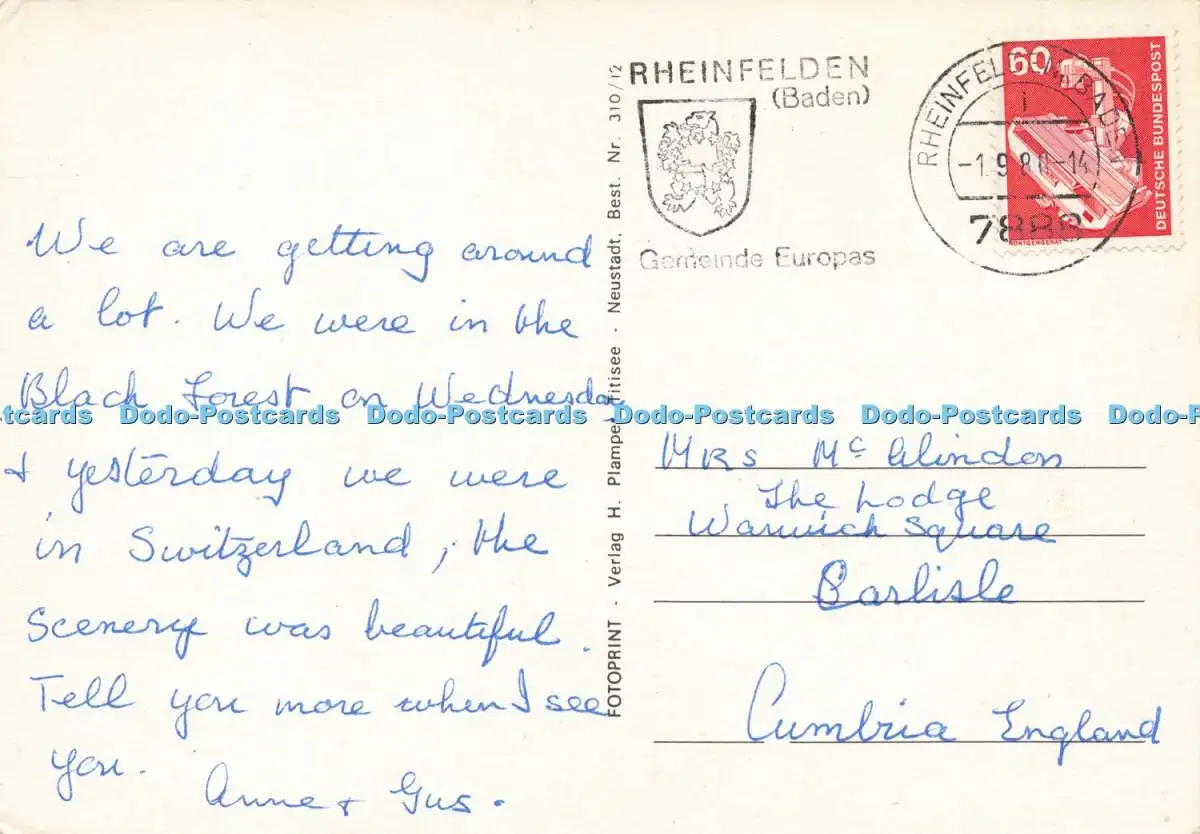 We are getting around
a lot. We were in the
Black Forest on Wednesday
+ yesterday we were
in Switzerland, the
Scenery was beautiful.
Tell you more when I see
you.
Anne + Gus.
FOTOPRINT - Verlag H. Plampe Titisee - Neustadt, Best. Nr. 310/12
RHEINFELDEN
(Baden)
Gemeinde Europas
RHEINFELDEN, BADEN
i
-1.9.80-14
7888
60
DEUTSCHE BUNDESPOST
RÖNTGENGERÄT
Mrs Mc Glindon
The Lodge
Warwick Square
Carlisle
Cumbria England
Dodo-Postcards Dodo-Postcards Dodo-Postcards Dodo-Postcards Dodo-P